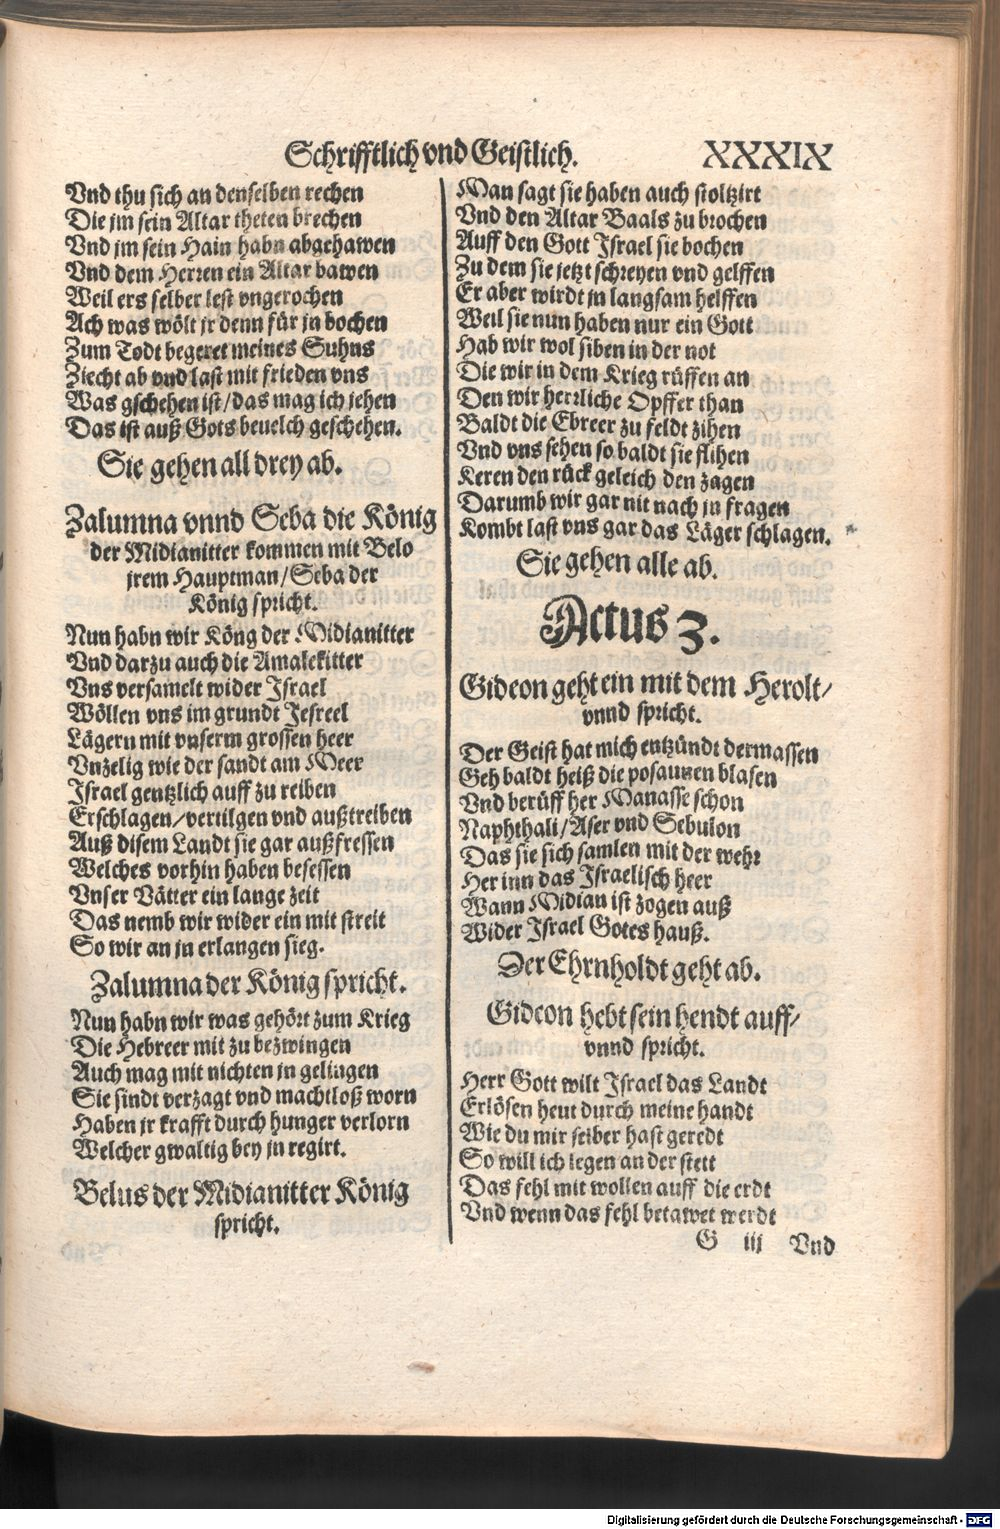 Schrifftlich vnd Geistlich. XXXIX
Vnd thu sich an denselben rechen
Die jm sein Altar theten brechen
Vnd jm sein Hain habn abgehawen
Vnd dem Herren ein Altar bawen
Weil ers selber lest vngerochen
Ach was wölt jr denn für jn bochen
Zum Todt begeret meines Suhns
Ziecht ab vnd last mit frieden vns
Was gschehen ist/das mag ich jehen
Das ist auß Gots beuelch geschehen.
Sie gehen all drey ab.
Zalumna vnnd Seba die König
der Midianitter kommen mit Belo
jrem Hauptman/Seba der
König spricht.
Nun habn wir Köng der Midianitter
Vnd darzu auch die Amalekitter
Vns versamelt wider Israel
Wöllen vns im grundt Jesreel
Lägern mit vnserm grossen heer
Vnzelig wie der sandt am Meer
Israel gentzlich auff zu reiben
Erschlagen/vertilgen vnd außtreiben
Auß disem Landt sie gar außfressen
Welches vorhin haben besessen
Vnser Vätter ein lange zeit
Das nemb wir wider ein mit streit
So wir an jn erlangen sieg.
Zalumna der König spricht.
Nun habn wir was gehört zum Krieg
Die Hebreer mit zu bezwingen
Auch mag mit nichten jn gelingen
Sie sindt verzagt vnd machtloß worn
Haben jr krafft durch hunger verlorn
Welcher gwaltig bey jn regirt.
Belus der Midianitter König
spricht.
Man sagt sie haben auch stoltzirt
Vnd den Altar Baals zu brochen
Auff den Gott Israel sie bochen
Zu dem sie jetzt schreyen vnd gelffen
Er aber wirdt jn langsam helffen
Weil sie nun haben nur ein Gott
Hab wir wol siben in der not
Die wir in dem Krieg rüffen an
Den wir herzliche Opffer than
Baldt die Ebreer zu feldt zihen
Vnd vns sehen so baldt sie flihen
Keren den rück geleich den zagen
Darumb wir gar nit nach jn fragen
Kombt last vns gar das Läger schlagen.
Sie gehen alle ab.
Actus 3.
Gideon geht ein mit dem Herolt/
vnnd spricht.
Der Geist hat mich entzündt dermassen
Geh baldt heiß die posaunen blasen
Vnd berüff her Manasse schon
Naphthali/Aser vnd Sebulon
Das sie sich samlen mit der wehr
Her inn das Israelisch heer
Wann Midian ist zogen auß
Wider Israel Gotes hauß.
Der Ehrnholdt geht ab.
Gideon hebt sein hendt auff/
vnnd spricht.
Herr Gott wilt Israel das Landt
Erlösen heut durch meine handt
Wie du mir selber hast geredt
So will ich legen an der stett
Das fehl mit wollen auff die erdt
Vnd wenn das fehl betawet werdt
G iij Vnd
Digitalisierung gefördert durch die Deutsche Forschungsgemeinschaft - DFG